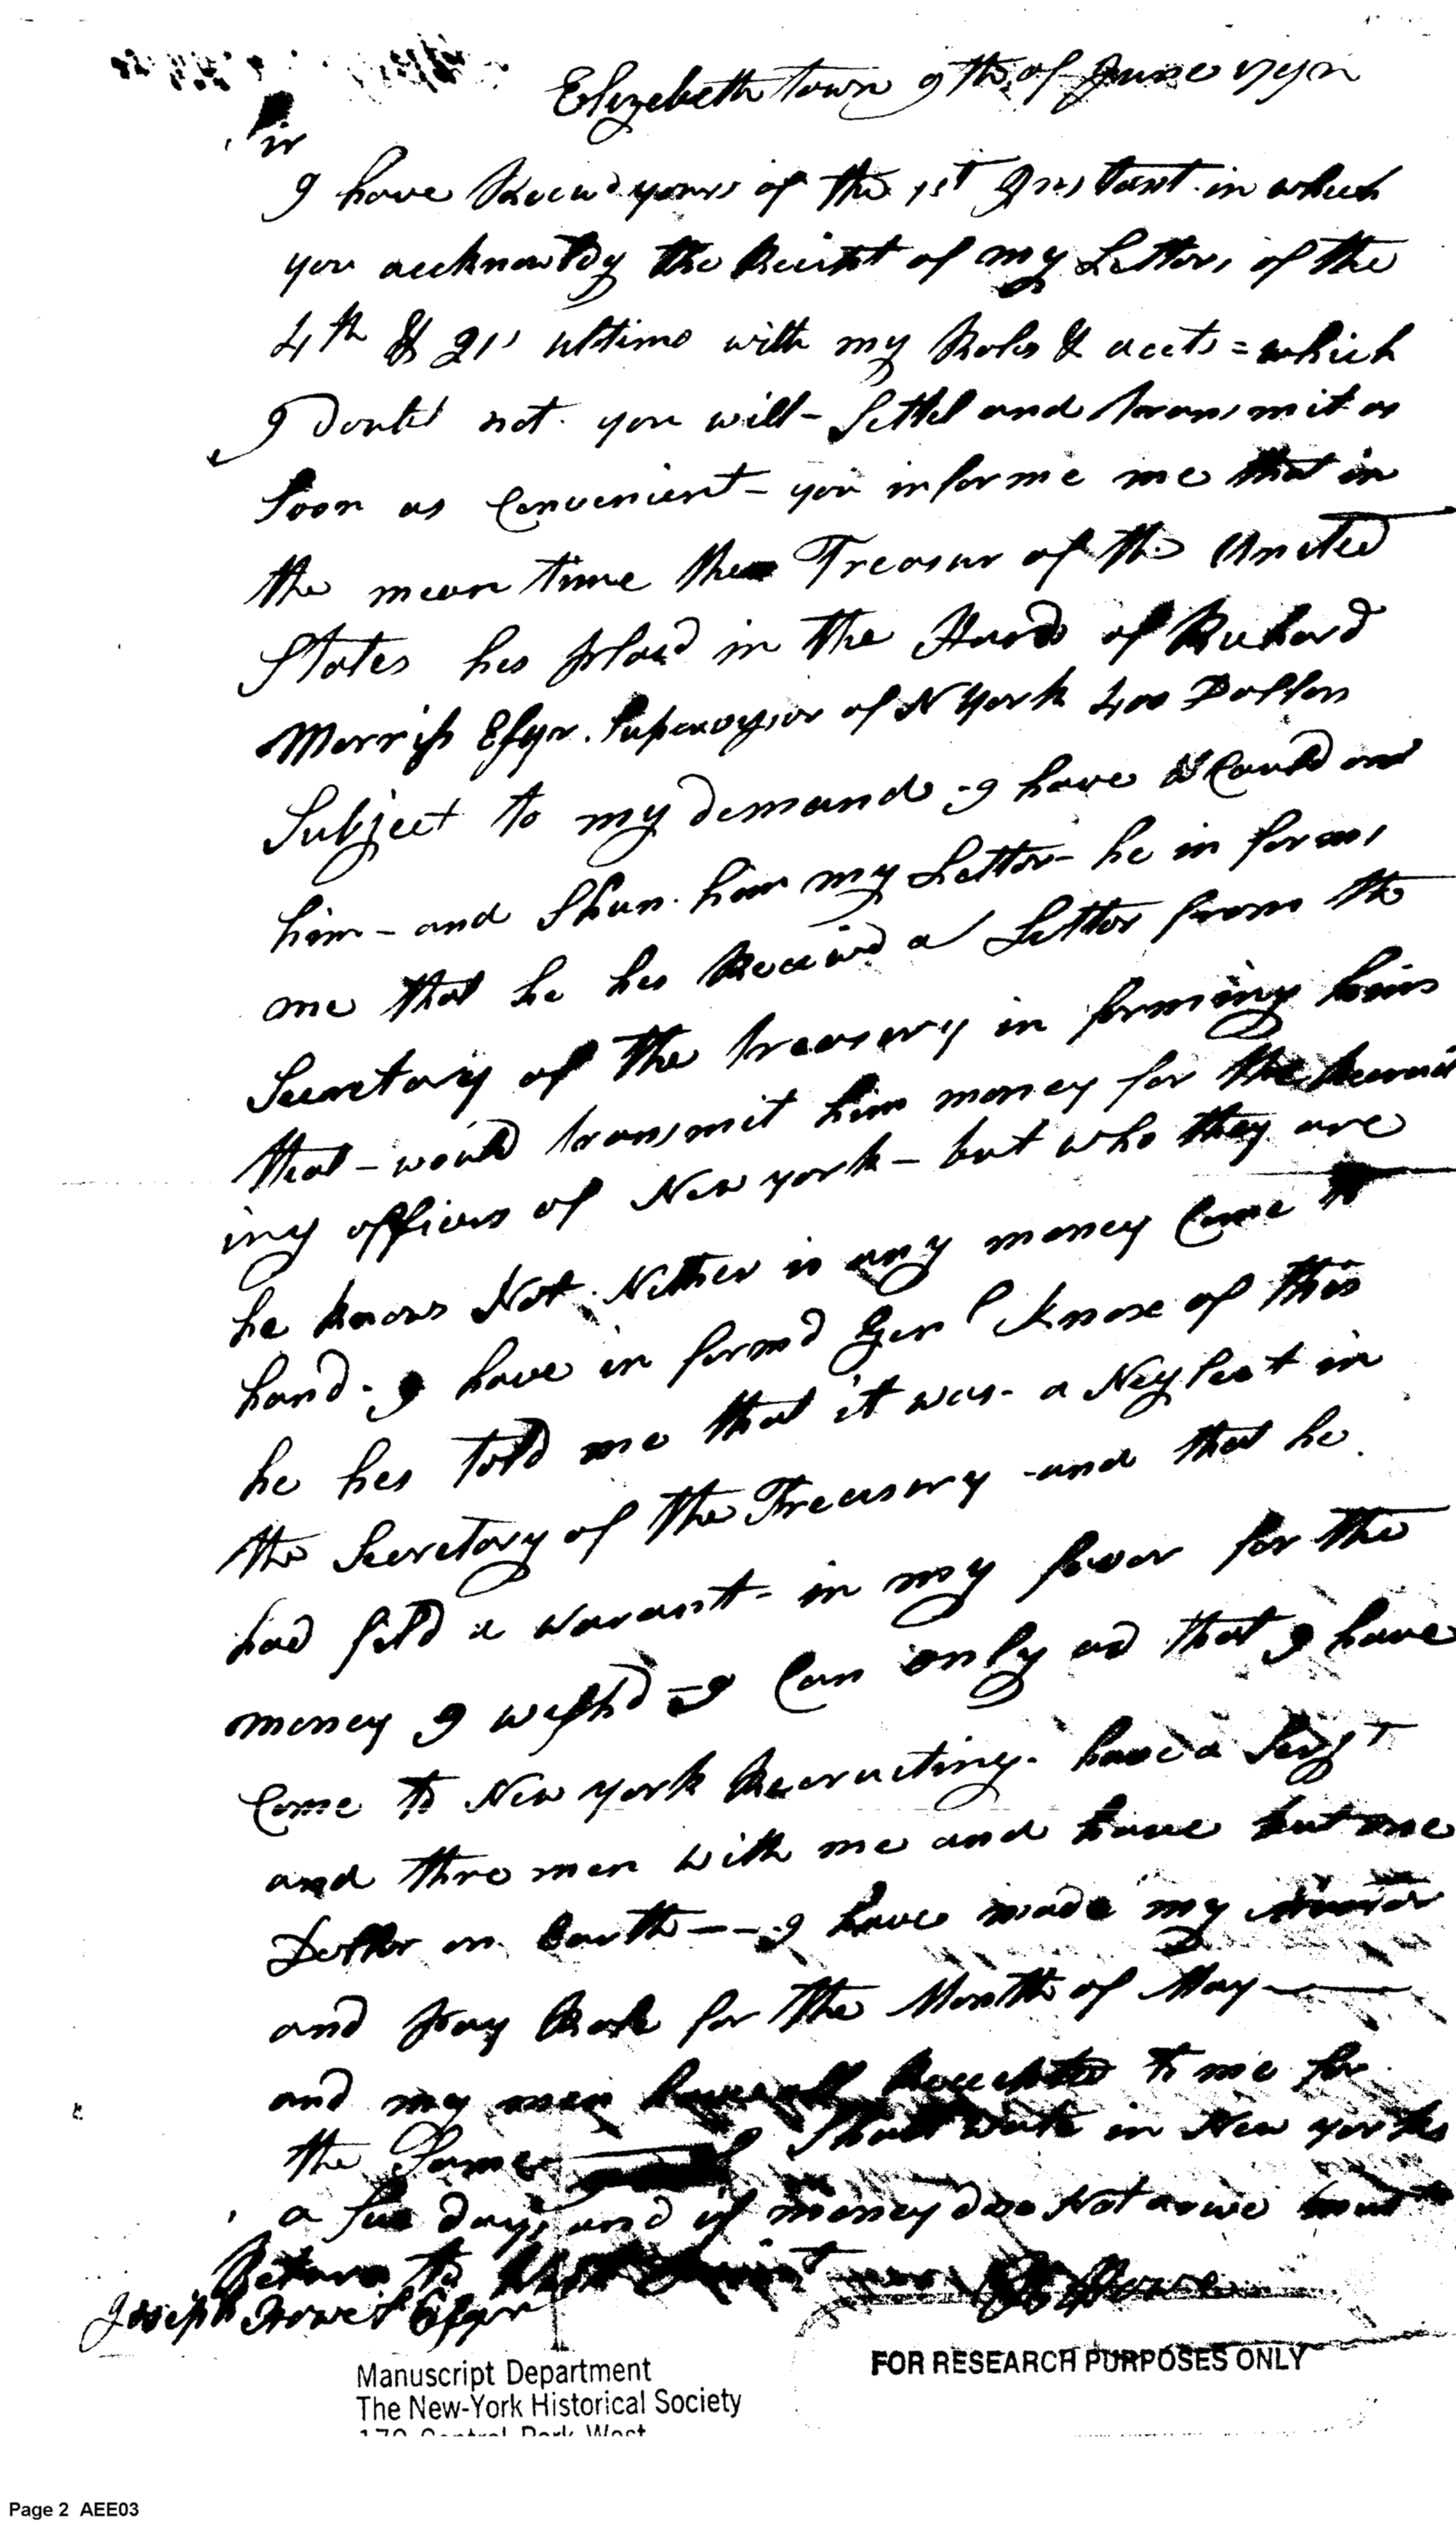 Elizebeth town 9th of June 1791
Sir
I have Receivd yours of the 1st Instant in which
you accknowldg the Receipt of my Letters of the
4th & 21s ultimo with my Roles & accts = which
I Doubt not you will - Settel and transmit as
Soon as Convenient - you informe me that in
the mean time the Treasur of the United
States hes plasd in the Hands of Richard
Morris Esqr. Supervysor of N York 400 Dollars
Subject to my demand - I have Calld on
him - and Shun him my Letter - he in forms
me that he hes Receivd a Letter from the
Secretary of the treasury in forming him
that - would transmit him money for the Recruit
ing officers of New york - but who they are
he knows Not. Nither is any money Come to
hand - I have in formd Genl Knox of this
he hes told me that it was a Neglect in
the Secretary of the Treasury - and that he
had fild a warant - in my favor for the
money I wishd - I Can only ad that I have
Come to New york Recruting. have a Sergt
and thre men with me and have but one
Doller on Earth -- I have made my
and pay Role for the Month of May
and my men to me for
the Same I Shall wate in New york
a few days and if money dos Not arive must
Return to West Point
Joseph Howel Esqr
Manuscript Department
The New-York Historical Society
170 Central Park West
FOR RESEARCH PURPOSES ONLY
Page 2 AEE03